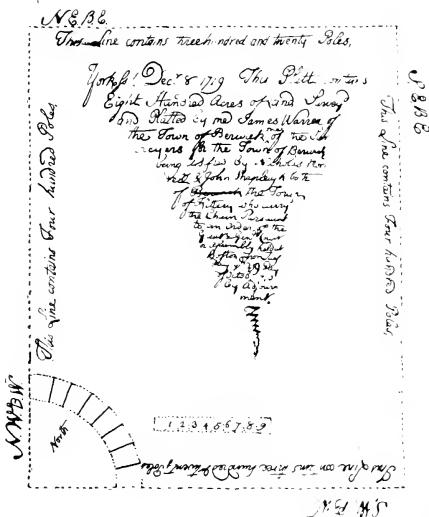 N.E.B.E.
This Line contains three hundred and twenty Poles,
Yorkss! Decr 8 1719 This Platt contains
Eight Hundred Acres of Land Survey
and Platted by me James Warren of
the Town of Berwick one of the Sur
veyers for the Town of Berwick
being assisted by Nicholas
& John Shapleigh both
of the Town
of Kittery who carry
the Chain Pursuant
to an Order of the
Great & Gen Court
Assembly held at
Boston upon
by Adjourn
ment.
S E B E
This Line contains Four hundred Poles,
This Line contains Four hundred Poles,
N.W.B.W.
North
1 2 3 4 5 6 7 8 9
This Line contains three hundred & twenty Poles
S.W.B.W.